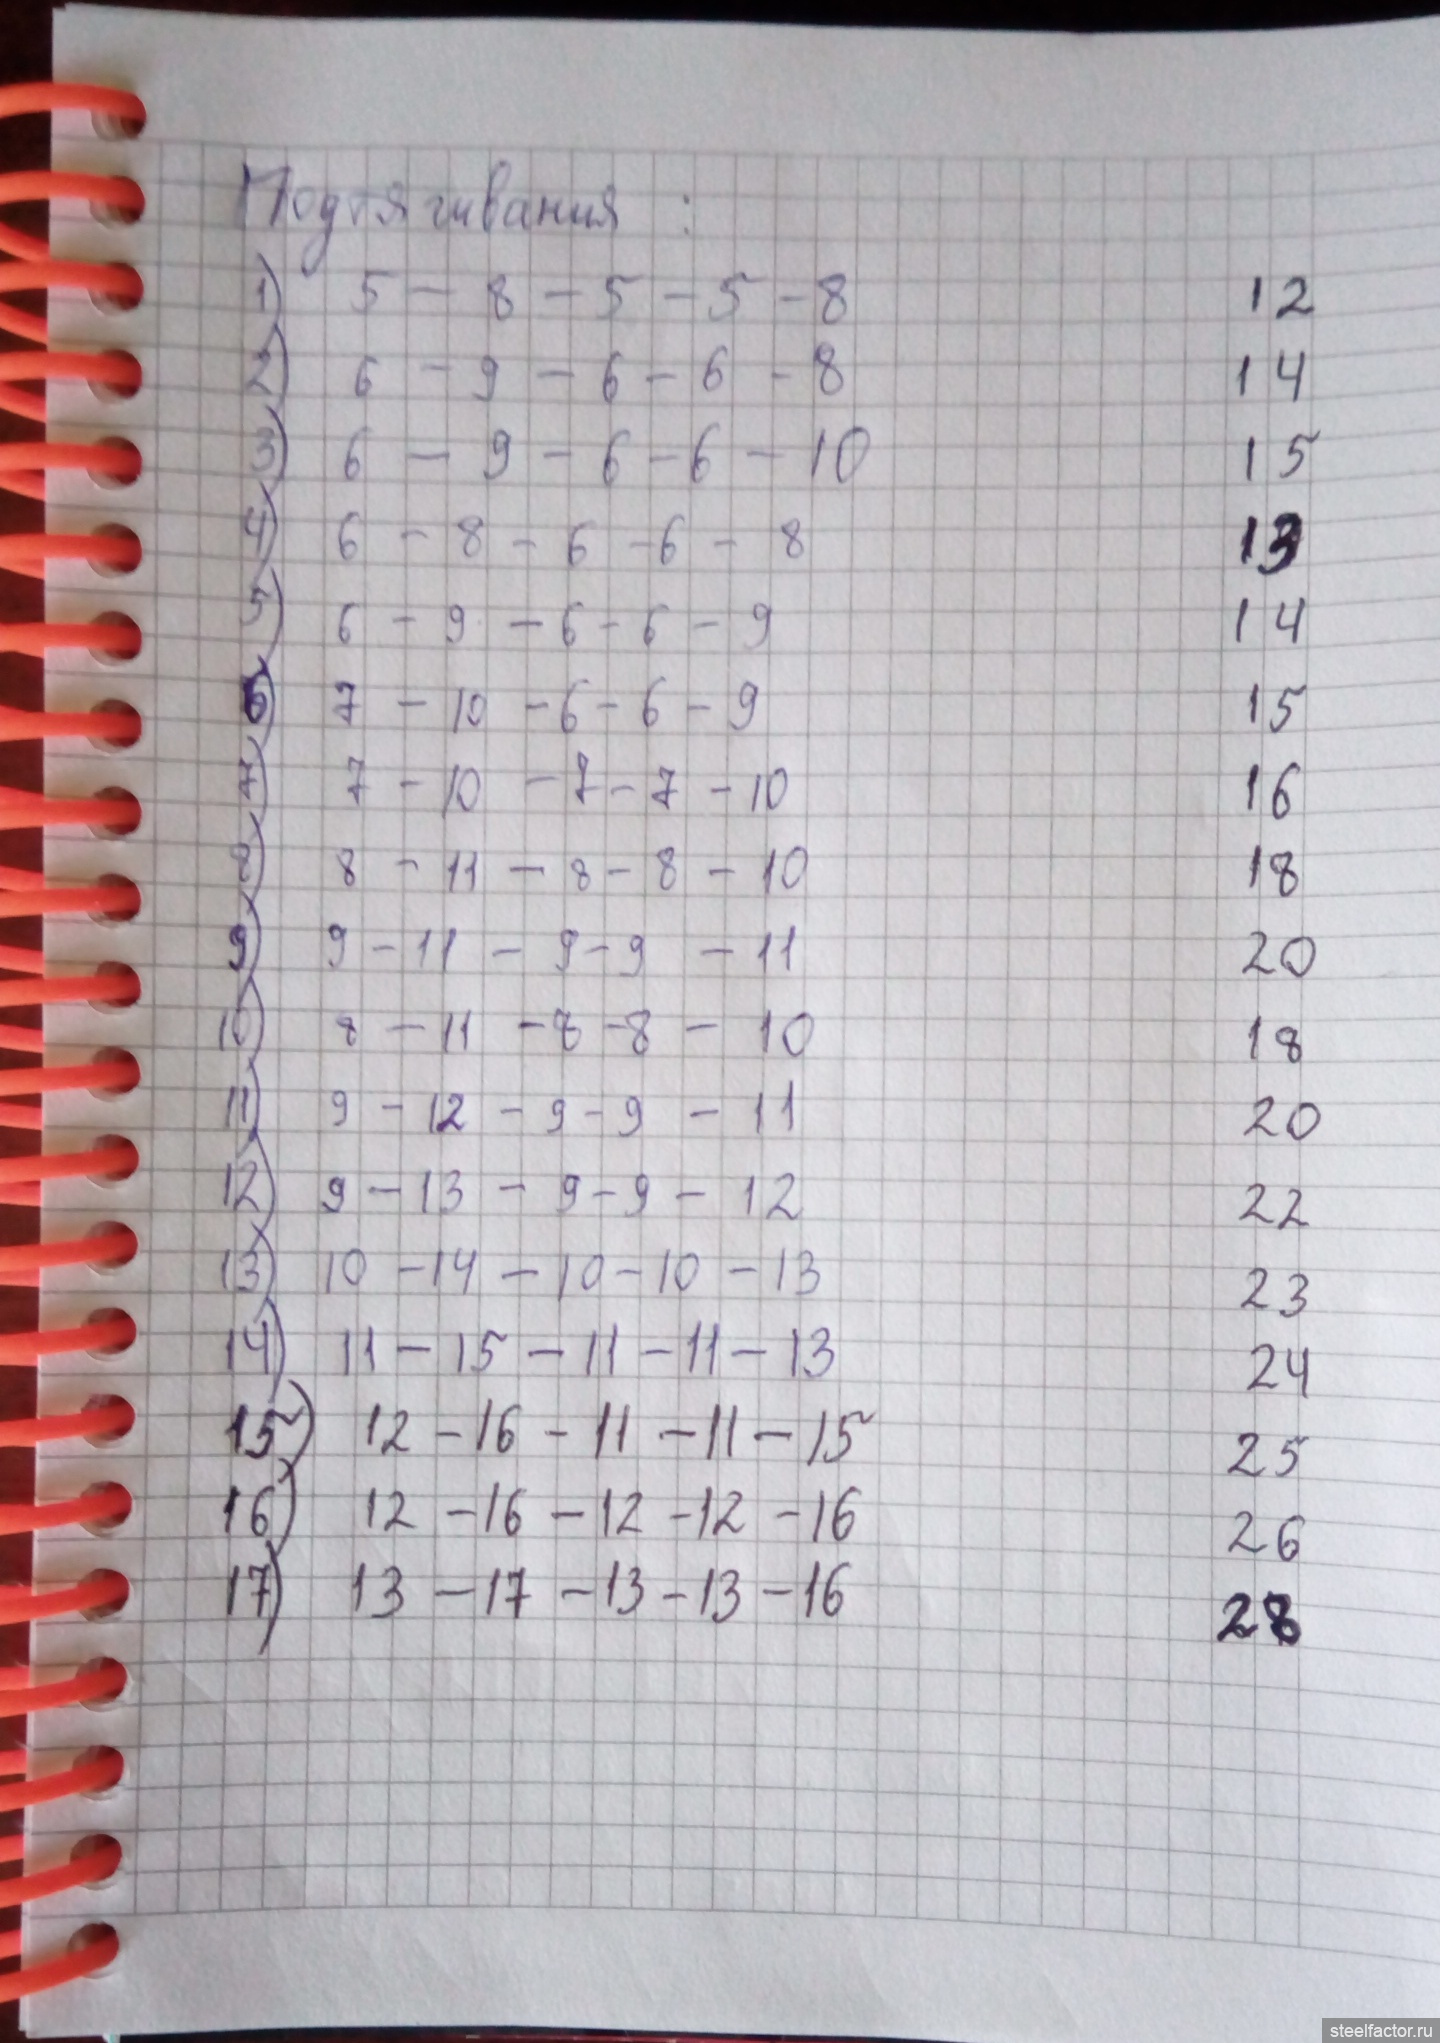 Подтягивания :
1) 5 - 8 - 5 - 5 - 8 12
2) 6 - 9 - 6 - 6 - 8 14
3) 6 - 9 - 6 - 6 - 10 15
4) 6 - 8 - 6 - 6 - 8 13
5) 6 - 9 - 6 - 6 - 9 14
6) 7 - 10 - 6 - 6 - 9 15
7) 7 - 10 - 7 - 7 - 10 16
8) 8 - 11 - 8 - 8 - 10 18
9) 9 - 11 - 9 - 9 - 11 20
10) 8 - 11 - 8 - 8 - 10 18
11) 9 - 12 - 9 - 9 - 11 20
12) 9 - 13 - 9 - 9 - 12 22
13) 10 - 14 - 10 - 10 - 13 23
14) 11 - 15 - 11 - 11 - 13 24
15) 12 - 16 - 11 - 11 - 15 25
16) 12 - 16 - 12 - 12 - 16 26
17) 13 - 17 - 13 - 13 - 16 28
steelfactor.ru